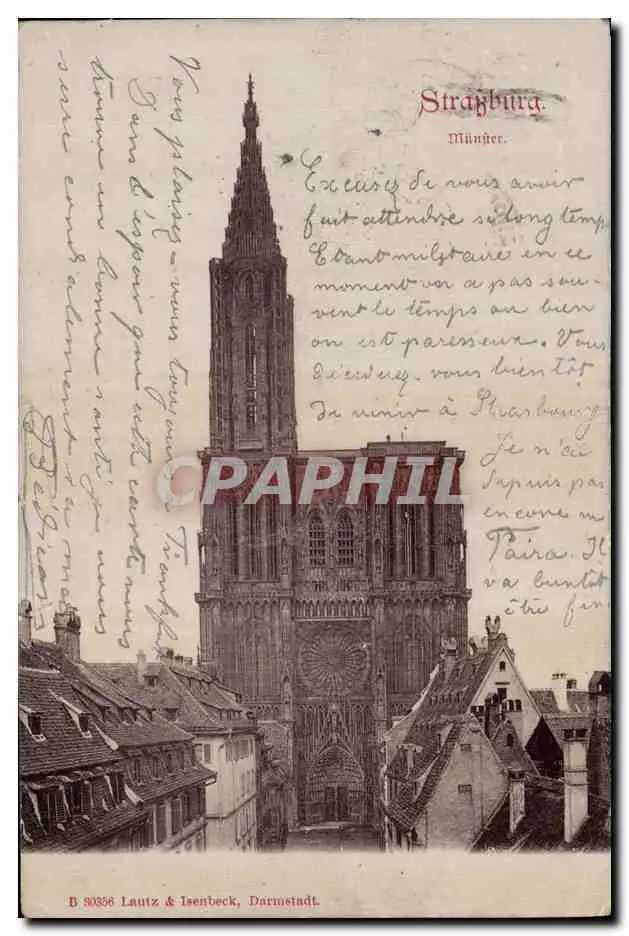 Straßburg.
Münster.
Excusez de vous avoir
fait attendre si long temp
Etant militaire en ce
moment on a pas sou-
vent le temps ou bien
on est paresseux. Vous
vous bientôt
de venir à Strasbourg
Je n'ai
depuis pas
encore
Il
va bientôt
être fin
Vous plaisez-vous toujours
Dans l'espoir que cette carte vous
trouve en bonne santé je vous
serre cordialement la main
CPA PHIL
B 30356 Lautz & Isenbeck, Darmstadt.